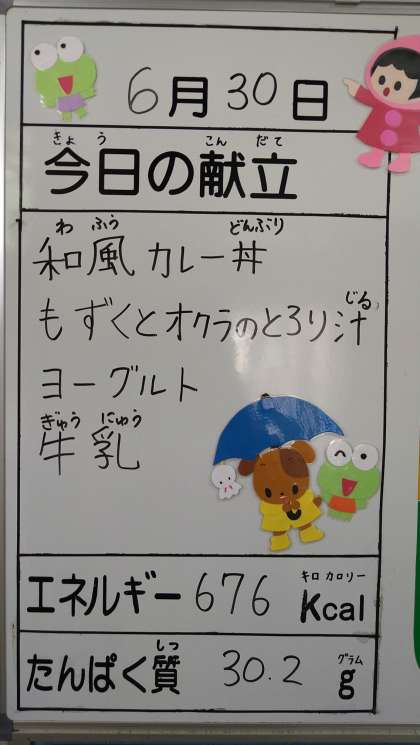 6月30日
きょう こんだて
今日の献立
わふう どんぶり
和風カレー丼
じる
もずくとオクラのとろり汁
ヨーグルト
ぎゅうにゅう
牛乳
キロカロリー
エネルギー 676 Kcal
しつ グラム
たんぱく質 30.2 g